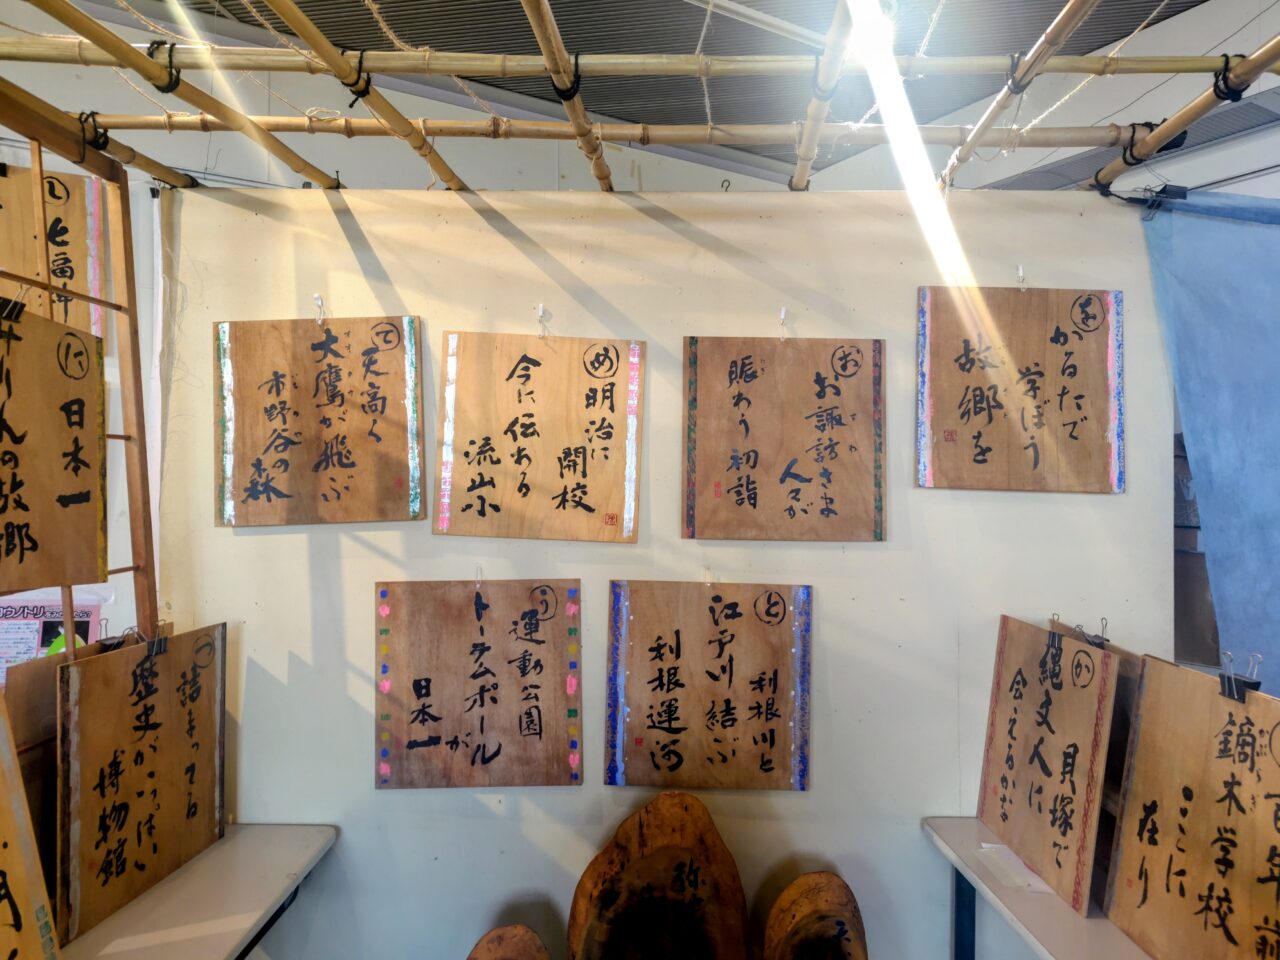 て
天高く
大鷹が飛ぶ
すすす
市野谷の森
め
明治に
開校
今に伝わる
流山小
お
お諏訪さま
すわ
人々が
賑わう初詣
にぎ
を
かるたで
学ぼう
故郷を
う
運動公園
トーテムポールが
日本一
と
利根川と
江戸川結ぶ
利根運河
し
七福神
に
日本一
みりんの故郷
コウノトリ
つ
詰まってる
歴史がいっぱい
博物館
か
貝塚で
縄文人に
会えるかな
百年前
鏑木学校
かぶらき
ここに
在り